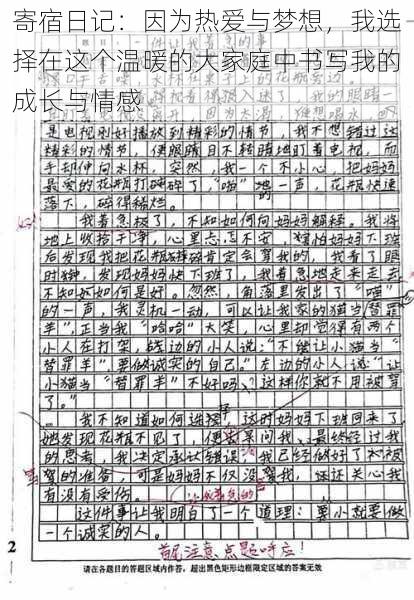 寄宿日记：因为热爱与梦想，我选
择在这个温暖的大家庭中书写我的
成长与情感
是电视刚好播放到精彩的情节，我不想错过这
精彩的情节，便眼睛目不转睛地盯着电视，而
手却伸向水杯，突然，我一个不小心，把妈妈
最爱的花瓶打碎了，“啪”的一声，花瓶快速
落下，碎得稀烂。
我着急极了，不知如何向妈妈解释。我将
地上收拾干净，心里忐忑不安，妈妈下班
后发现我把花瓶肯定会骂我的，我看了眼
时钟，发现妈妈快下班了，我着急地走来走去
不知如何是好。忽然，角落里发出了“喵”
的一声，我灵机一动，可以让我家的猫当替罪
羊”，正当我“哈哈”大笑，心里却觉得有两个
小人在打架，边的小人说：“不能让小猫当“
替罪羊”，要做诚实的自己。”左边的小人说：“让
小猫当“替罪羊”不好吗？这样你就不用被骂
了。”
我不知道如何选择，这时妈妈下班回来了
她发现花瓶不见了，便问我，最终经过我
的思考，我决定承认错误，我已经做好了被
骂的准备，可是妈妈不仅没骂我，还关心我
有没有受伤。
这件事让我明白了一个道理：要做
一个诚实的人。
首尾注意点题呼应！
2
请在各题目的答题区域内作答，超出黑色矩形边框限定区域的答案无效